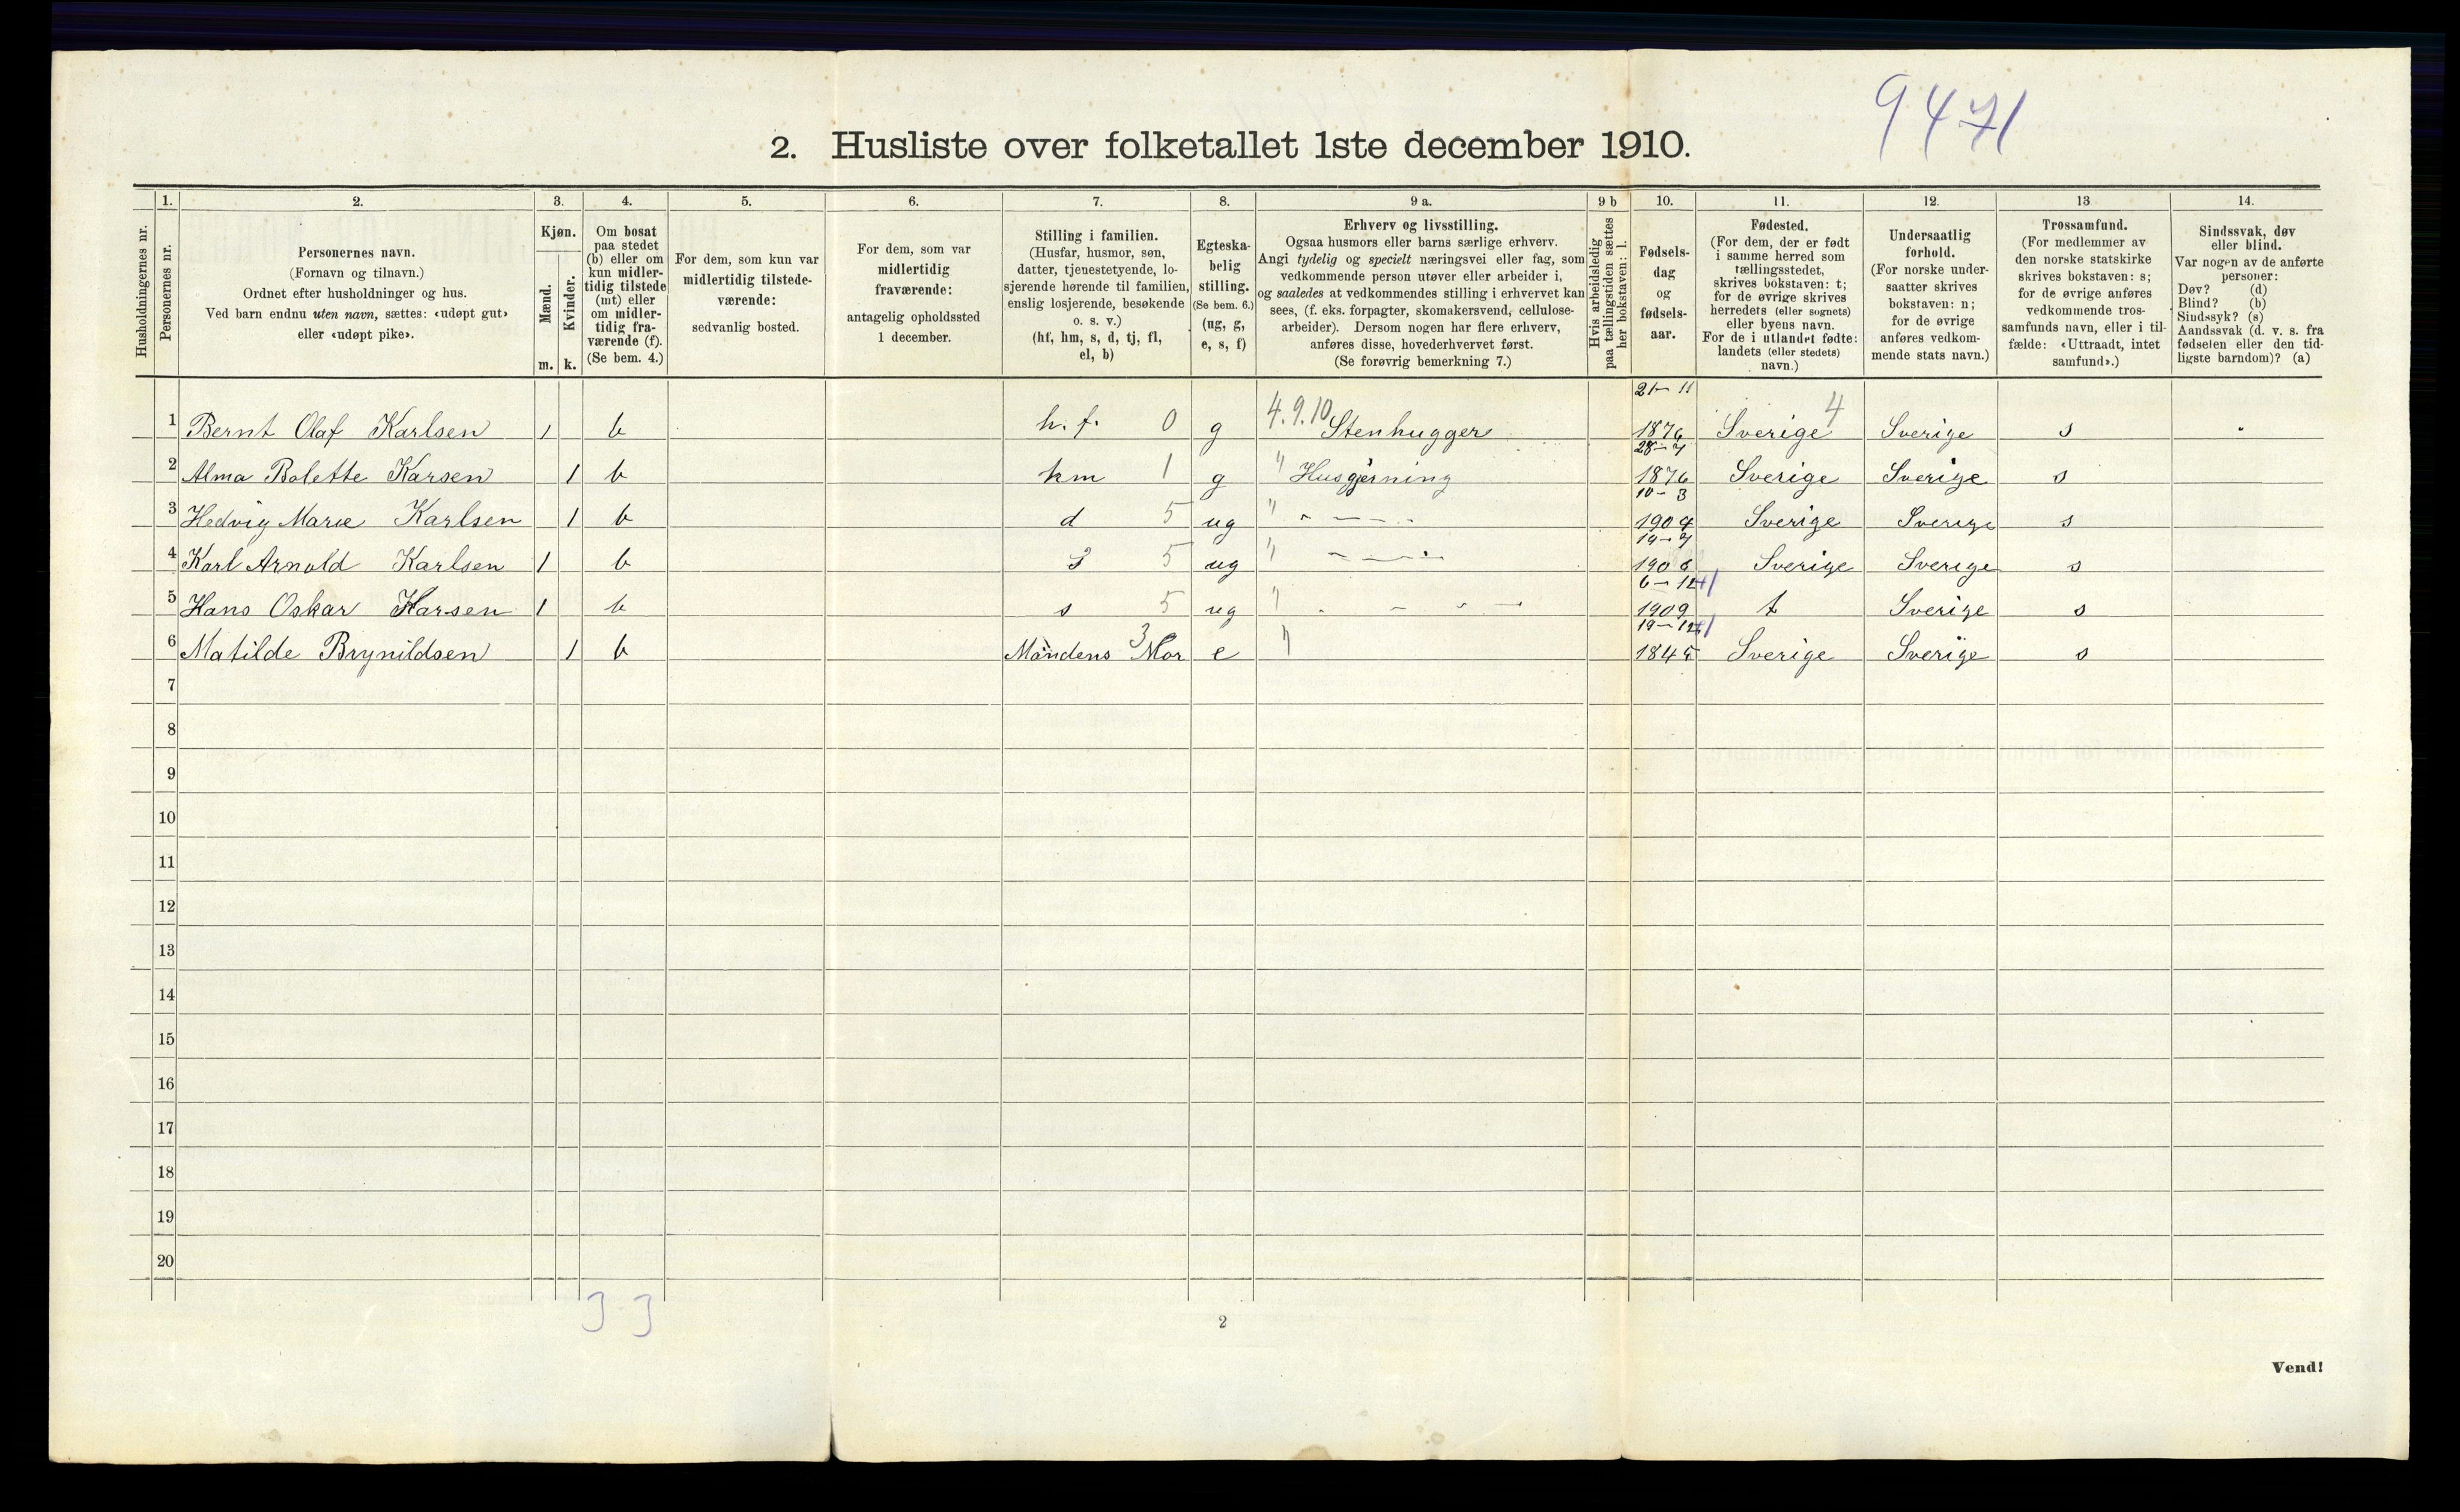 9471
2. Husliste over folketallet 1ste december 1910.
Husholdningernes nr.
1. Personernes nr.
2. Personernes navn.
(Fornavn og tilnavn.)
Ordnet efter husholdninger og hus.
Ved barn endnu uten navn, sættes: «udøpt gut»
eller «udøpt pike».
3. Kjøn.
Mænd. m.
Kvinder. k.
4. Om bosat
paa stedet
(b) eller om
kun midler-
tidig tilstede
(mt) eller
om midler-
tidig fra-
værende (f).
(Se bem. 4.)
5. For dem, som kun var
midlertidig tilstede-
værende:
sedvanlig bosted.
6. For dem, som var
midlertidig
fraværende:
antagelig opholdssted
1 december.
7. Stilling i familien.
(Husfar, husmor, søn,
datter, tjenestetyende, lo-
sjerende hørende til familien,
enslig losjerende, besøkende
o. s. v.)
(hf, hm, s, d, tj, fl,
el, b)
8. Egteska-
belig
stilling.
(Se bem. 6.)
(ug, g,
e, s, f)
9 a. Erhverv og livsstilling.
Ogsaa husmors eller barns særlige erhverv.
Angi tydelig og specielt næringsvei eller fag, som
vedkommende person utøver eller arbeider i,
og saaledes at vedkommendes stilling i erhvervet kan
sees, (f. eks. forpagter, skomakersvend, cellulose-
arbeider). Dersom nogen har flere erhverv,
anføres disse, hovederhvervet først.
(Se forøvrig bemerkning 7.)
9 b Hvis arbeidsledig
paa tællingstiden sættes
her bokstaven: l.
10. Fødsels-
dag
og
fødsels-
aar.
11. Fødested.
(For dem, der er født
i samme herred som
tællingsstedet,
skrives bokstaven: t;
for de øvrige skrives
herredets (eller sognets)
eller byens navn.
For de i utlandet fødte:
landets (eller stedets)
navn.)
12. Undersaatlig
forhold.
(For norske under-
saatter skrives
bokstaven: n;
for de øvrige
anføres vedkom-
mende stats navn.)
13 Trossamfund.
(For medlemmer av
den norske statskirke
skrives bokstaven: s;
for de øvrige anføres
vedkommende tros-
samfunds navn, eller i til-
fælde: «Uttraadt, intet
samfund».)
14. Sindssvak, døv
eller blind.
Var nogen av de anførte
personer:
Døv? (d)
Blind? (b)
Sindssyk? (s)
Aandssvak (d. v. s. fra
fødselen eller den tid-
ligste barndom)? (a)
1 Bernt Olaf Karlsen 1 b h. f. 0 g 4.9.10 Stenhugger 21-11 1876 Sverige 4 Sverige s
2 Alma Bolette Karsen 1 b hm 1 g " Husgjerning 28-7 1876 Sverige Sverige s
3 Hedvig Marie Karlsen 1 b d 5 ug " 10-3 1904 Sverige Sverige s
4 Karl Arnold Karlsen 1 b s 5 ug " Sverige Sverige s
5 Hans Oskar Karsen 1 b s 5 ug " 6-12 1909 t Sverige s
6 Matilde Brynildsen 1 b Mandens Mor 3 e " 19-12 1845 Sverige Sverige s
7
8
9
10
11
12
13
14
15
16
17
18
19
20
3 3
2
Vend!